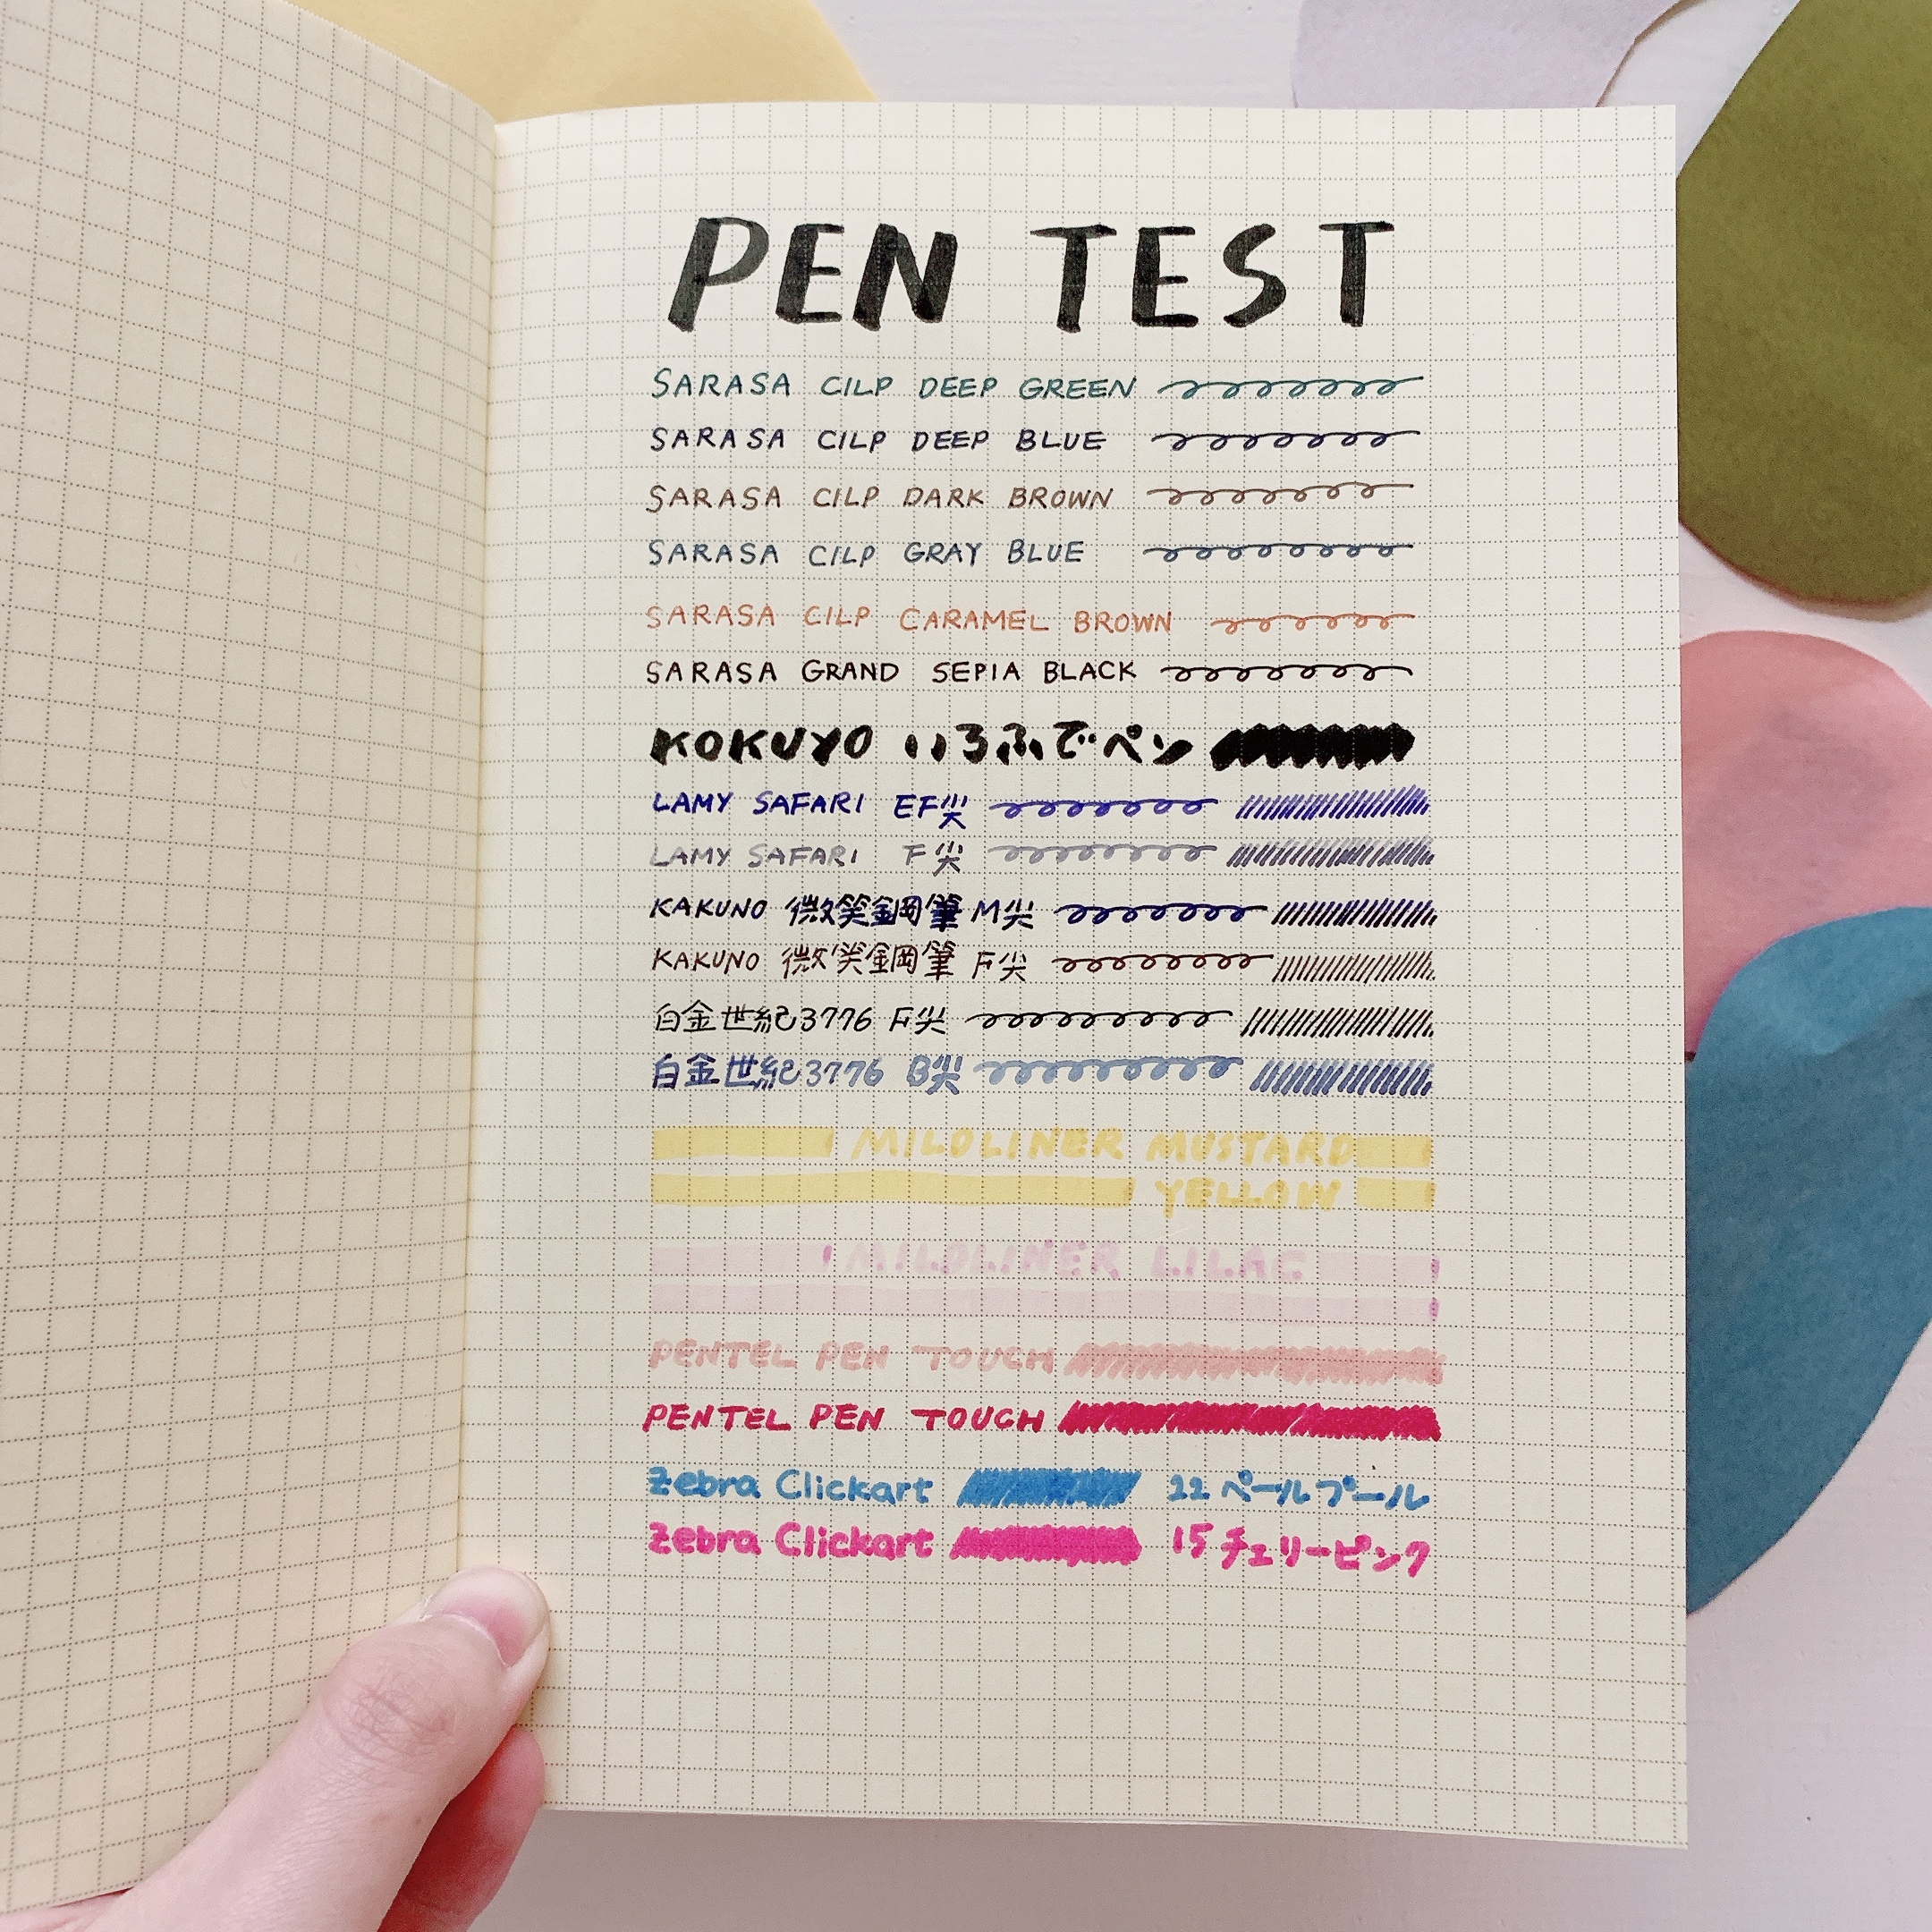 PEN TEST
SARASA CILP DEEP GREEN
SARASA CILP DEEP BLUE
SARASA CILP DARK BROWN
SARASA CILP GRAY BLUE
SARASA CILP CARAMEL BROWN
SARASA GRAND SEPIA BLACK
KOKUYO いろふでペン
LAMY SAFARI EF尖
LAMY SAFARI F尖
KAKUNO 微笑鋼筆 M尖
KAKUNO 微笑鋼筆 F尖
白金世紀3776 F尖
白金世紀3776 B尖
MILDLINER MUSTARD
YELLOW
MILDLINER LILAC
PENTEL PEN TOUCH
PENTEL PEN TOUCH
Zebra Clickart 22 ペールブール
Zebra Clickart 15 チェリーピンク